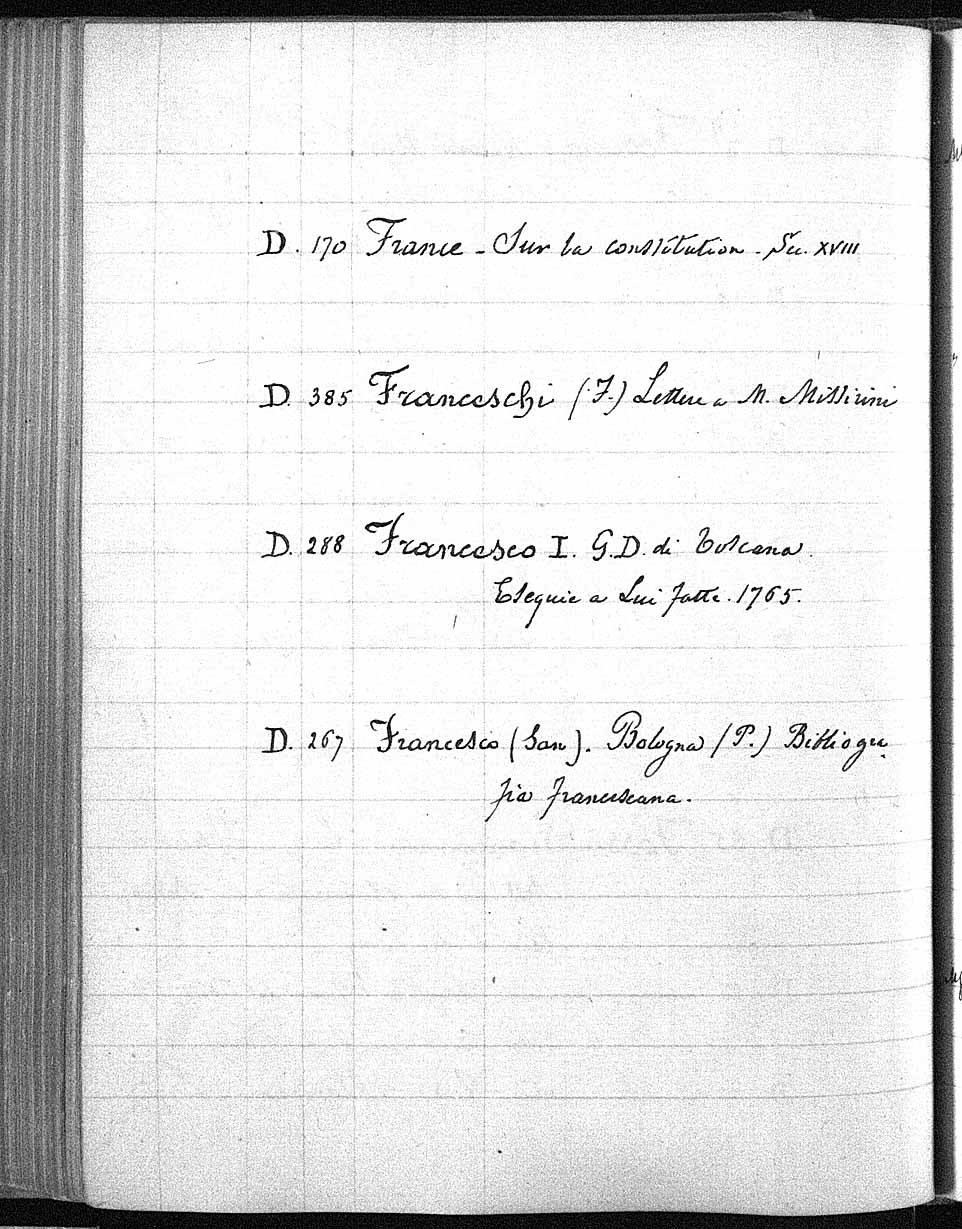 D. 170 France - Sur la constitution - Sec. XVIII
D. 385 Franceschi (F.) Lettere a M. Missirini
D. 288 Francesco I. G.D. di Toscana.
Esequie a Lui fatte. 1765.
D. 267 Francesco (San). Bologna (P.) Bibliogra
fia francescana.